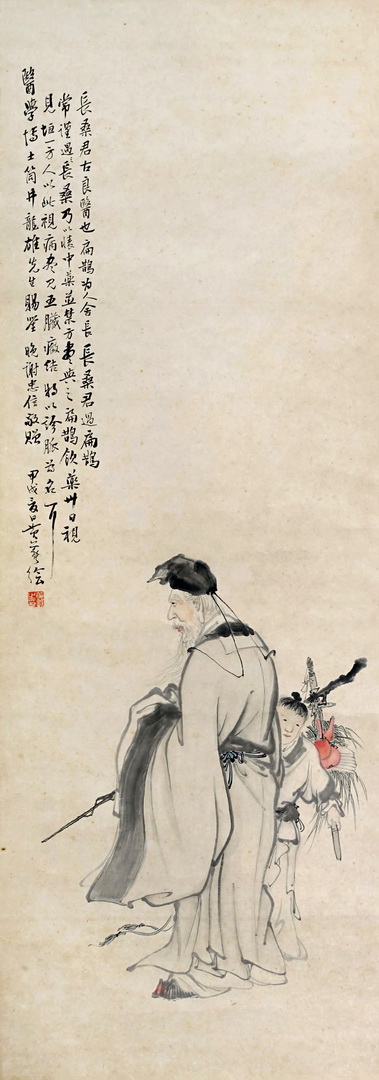 長桑君古良醫也扁鵲为人舍長長桑君過扁鵲
常謹遇之長桑乃以懷中藥並禁方盡與之扁鵲飲藥卅日視
見垣一方人以此視病盡見五臟癥结特以診脈為名耳
醫學博士筒井龍雄先生賜鑒 晚謝忠信敬贈 甲戌夏日黄 繪